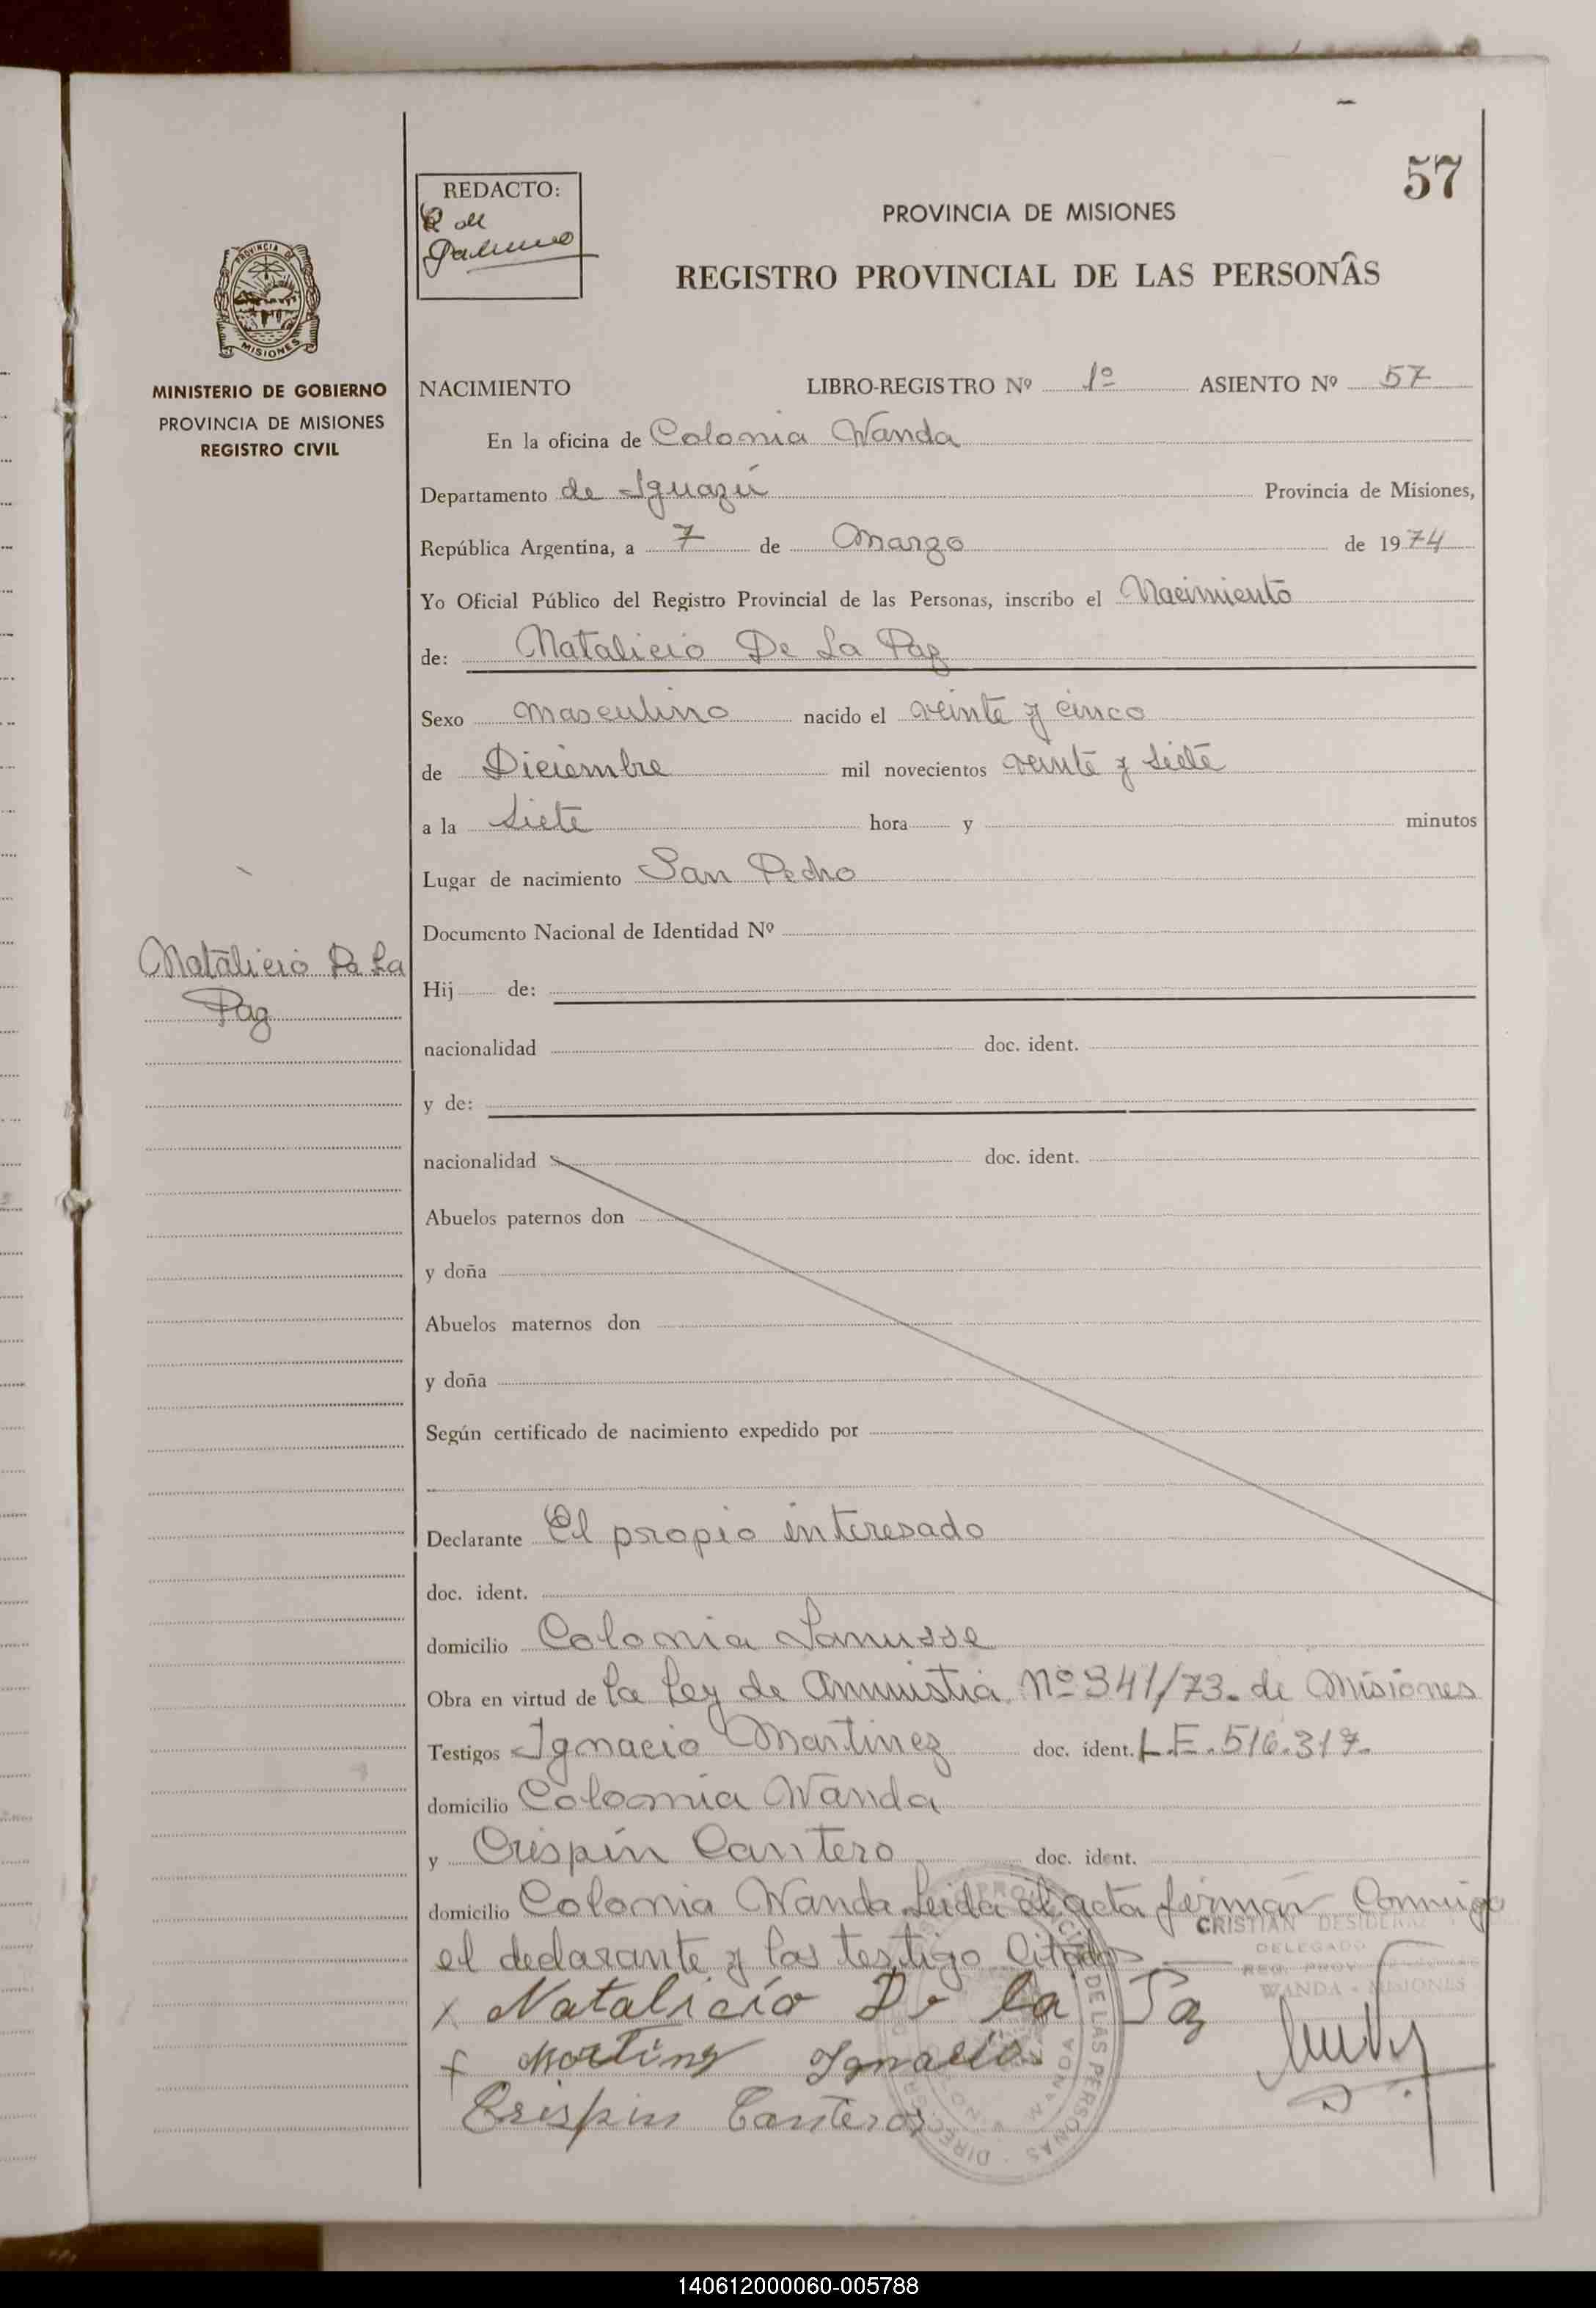 57
REDACTO:
PROVINCIA DE MISIONES
REGISTRO PROVINCIAL DE LAS PERSONAS
PROVINCIA DE
MISIONES
MINISTERIO DE GOBIERNO
PROVINCIA DE MISIONES
REGISTRO CIVIL
NACIMIENTO LIBRO-REGISTRO Nº 1º ASIENTO Nº 57
En la oficina de Colonia Wanda
Departamento de Iguazú Provincia de Misiones,
República Argentina, a 7 de Marzo de 1974
Yo Oficial Público del Registro Provincial de las Personas, inscribo el Nacimiento
de: Natalicio De La Paz
Sexo masculino nacido el veinte y cinco
de Diciembre mil novecientos veinte y siete
a la siete hora y minutos
Lugar de nacimiento San Pedro
Documento Nacional de Identidad Nº
Natalicio De La
Paz
Hij de:
nacionalidad doc. ident.
y de:
nacionalidad doc. ident.
Abuelos paternos don
y doña
Abuelos maternos don
y doña
Según certificado de nacimiento expedido por
Declarante El propio interesado
doc. ident.
domicilio Colonia Lanusse
Obra en virtud de la Ley de Amnistia Nº 341/73. de Misiones
Testigos Ignacio Martinez doc. ident. L.E. 516.317.
domicilio Colonia Wanda
y Crispín Cantero doc. ident.
domicilio Colonia Wanda Leida el acta firman Conmigo
el declarante y los testigo Citados
CRISTIAN
DELEGADO
REG. PROV.
WANDA - MISIONES
x Natalicio De la Paz
x Martinez Ignacio
Crispin Canteros
DE LAS PERSONAS
WANDA
140612000060-005788